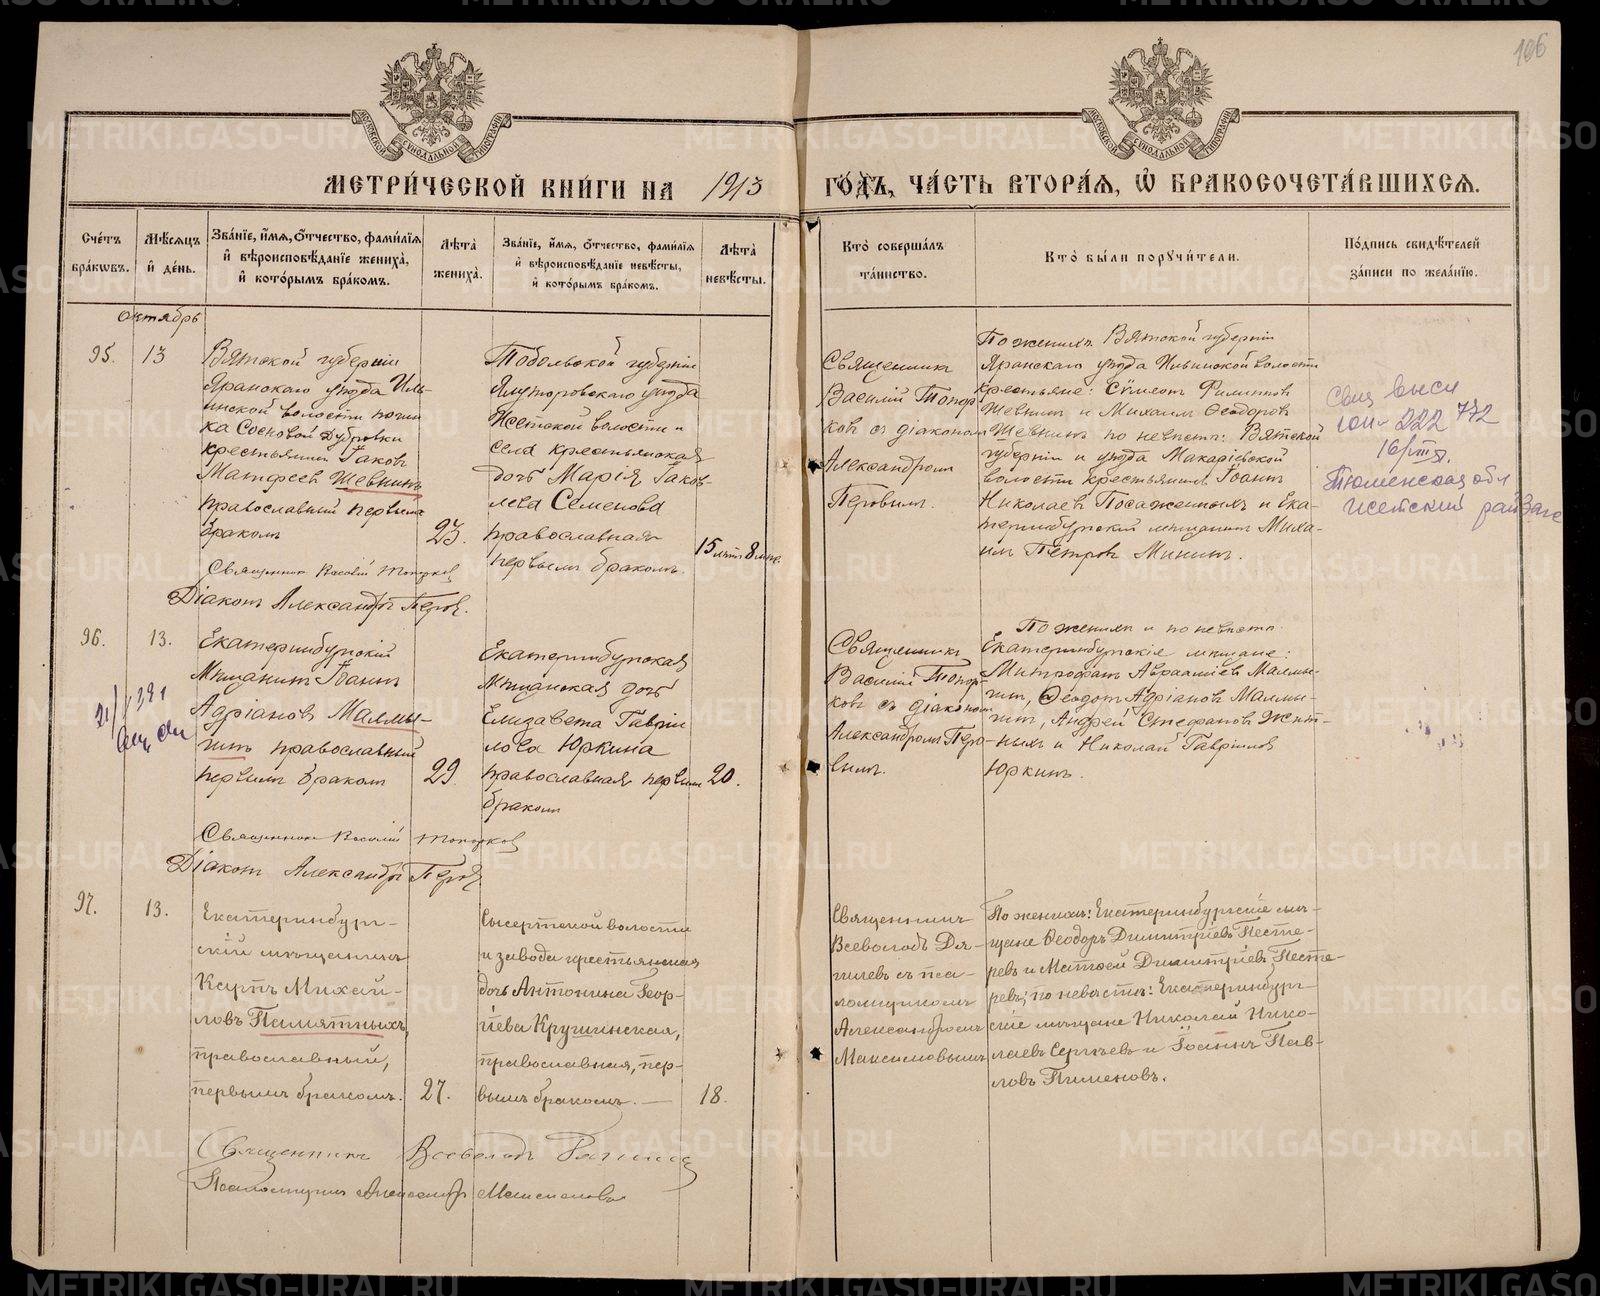 106
МЕТРИ́ЧЕСКОЙ КНИ́ГИ НА 1913 ГО́ДЪ, ЧА́СТЬ ВТОРА́Я, Ѡ БРАКОСОЧЕТА́ВШИХСЯ.
МОСКОВСКОЙ СѴНОДАЛЬНОЙ ТИПОГРАФІИ
МОСКОВСКОЙ СѴНОДАЛЬНОЙ ТИПОГРАФІИ
Сче́тъ бра́кѡвъ.
Мѣ́сяцъ и҆ де́нь.
Зва́нїе, и҆́мя, ѻ҆́тчество, фами́лїя
и҆ вѣроисповѣ́данїе жениха̀,
и҆ кото́рымъ бра́комъ.
Лѣта̀ жениха̀.
Зва́нїе, и҆́мя, ѻ҆́тчество, фами́лїя
и҆ вѣроисповѣ́данїе невѣ́сты,
и҆ кото́рымъ бра́комъ.
Лѣта̀ невѣ́сты.
Кто̀ соверша́лъ
та́инство.
Кто̀ бы́ли поручи́тели.
По́дпись свидѣ́телей
за́писи по жела́нїю.
Октябрь
95.
13
Вятской губерніи
Яранскаго уѣзда Иль-
инской волости почин
ка Сосновой Дубровки
крестьянинъ Іаковъ
Матѳеевъ Шевнинъ
православный первымъ
бракомъ
23.
Тобольской губерніи
Ялуторовскаго уѣзда
Исетской волости и
села крестьянская
дочь Марія Іаков-
лева Семенова
православная
первымъ бракомъ.
15 лѣтъ 8 мѣс.
Священникъ
Василій Топор
ковъ съ діакономъ
Александромъ
Перовымъ.
По женихѣ Вятской губерніи
Яранскаго уѣзда Ильинской волости
крестьяне: Сѵмеонъ Филипповъ
Шевнинъ и Михаилъ Ѳеодоровъ
Шевнинъ по невѣстѣ: Вятской
губерніи и уѣзда Макаріевской
волости крестьянинъ Іоаннъ
Николаевъ Посаженныхъ и Ека-
теринбургскій мѣщанинъ Миха-
илъ Петровъ Мининъ.
222 772
16/III
Тюменская обл
Исетский
Священникъ Василій Топорковъ
Діаконъ Александръ Перовъ.
96.
13.
Екатеринбургскій
Мѣщанинъ Іоаннъ
Адріановъ Малмы-
гинъ православный
первымъ бракомъ
29.
Екатеринбургская
Мѣщанская дочь
Елизавета Гаврі
лова Юркина
православная первымъ
бракомъ
20.
Священникъ
Василій Топор-
ковъ съ діакономъ
Александромъ Перо-
вымъ.
По женихѣ и по невѣстѣ
Екатеринбургскіе мѣщане:
Митрофанъ Авраамiевъ Малмы-
гинъ, Ѳеодотъ Адріановъ Малмы-
гинъ, Андрей Стефановъ
и Николай Гавріиловъ
Юркинъ.
Священникъ Василій Топорковъ
Діаконъ Александръ Перовъ
97.
13.
Екатеринбург-
скій мѣщанинъ
Карпъ Михай-
ловъ Памятныхъ,
православный,
первымъ бракомъ.
27.
Сысертской волости
и завода крестьянская
дочь Антонина Геор-
гіева Крушинская,
православная, пер-
вымъ бракомъ. —
18.
Священникъ
Всеволодъ Дя-
гилевъ съ пса-
ломщикомъ
Александромъ
Максимовымъ
По женихѣ: Екатеринбургскіе мѣ-
щане Ѳеодоръ Димитріевъ Песте-
ревъ и Матѳей Димитріевъ Песте-
ревъ; по невѣстѣ: Екатеринбург
скіе мѣщане Николай Нико-
лаевъ Сергѣевъ и Іоаннъ Пав-
ловъ Пименовъ.
Священникъ Всеволодъ Дягилевъ
Псаломщикъ Александръ Максимовъ
METRIKI.GASO-URAL.RU